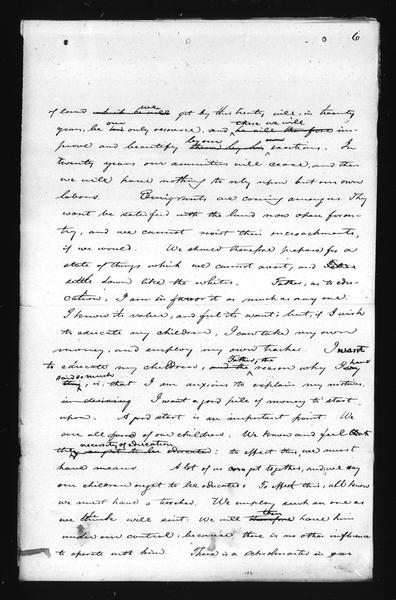 6
of land which he will we get by this treaty will, in twenty
years, be his our only resource, and he will therefore these we will im-
prove and beautify them by his by our own exertions. In
twenty years our annuities will cease, and then
we will have nothing to rely upon but our own
labors. Emigrants are coming among us They
wont be satisfied with the land now open for en-
try, and we cannot resist their encroachments,
if we would. We should therefore prepare for a
state of things which we cannot avert, and
settle down like the whites. Father, as to edu-
cation, I am in favor to as much as any one.
I know its value, and feel its want; but, if I wish
to educate my children, I can take my own
money, and employ my own teacher. I want
to educate my children, and the Father, the reason why I say have
thing said so much, is, that I am anxious to explain my motives.
in desiring I want a good pile of money to start
upon. A good start is an important point. We
are all fond of our children. We know and feel that
they ought to be educated necessity of educating: to effect this, we must
have means. A lot of us can get together, and, we say
our children ought to be educated; To effect this, all know
we must have a teacher. We employ such an one as
we think will suit. We will therefore then have him
under our control; because there is no other influence
to operate with him. There is a schoolmaster in our